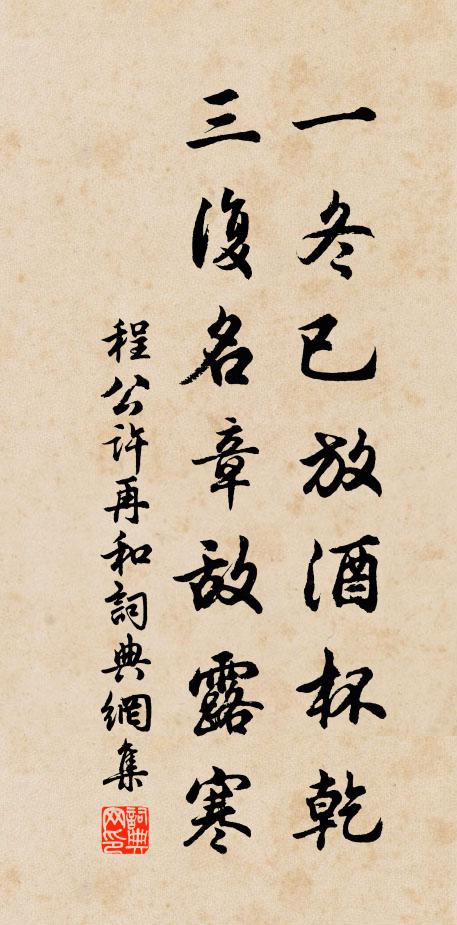 一冬已放酒杯乾
三復名章敵露寒
程公許再和詞典網集
詞典網印